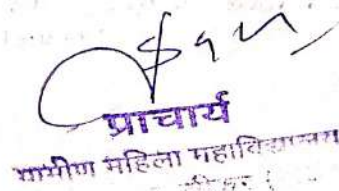 प्राचार्य
ग्रामीण महिला महाविद्यालय
सीकर